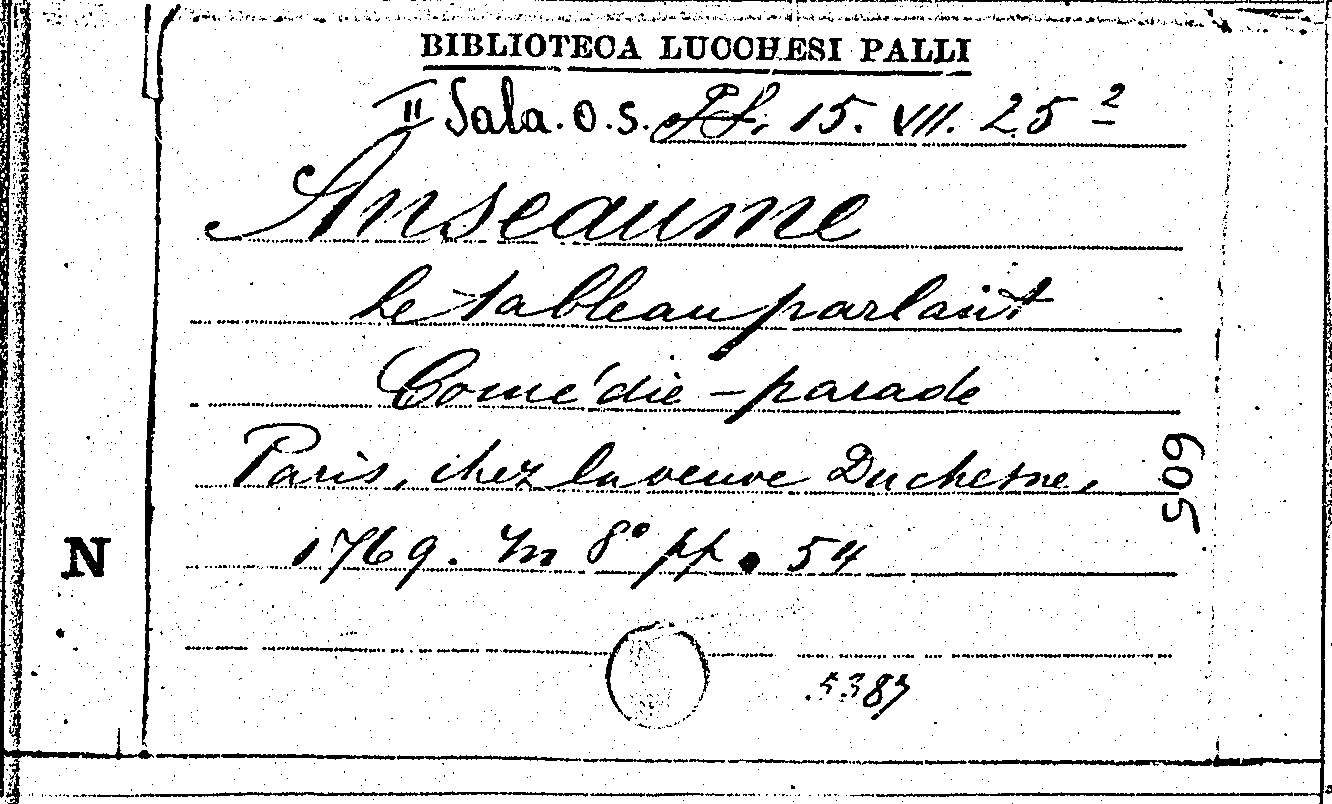 BIBLIOTECA LUCCHESI PALLI
II Sala. O. S. 15. VII. 25 2
Anseaume
Le tableau parlant
Comédie - parade
Paris, chez la veuve Duchesne,
1769. In 8° pp. 54
N
605